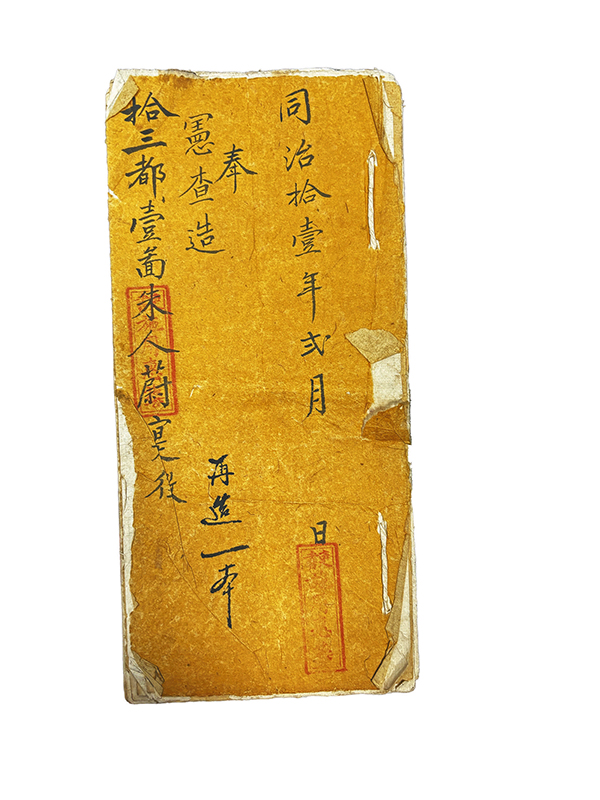 同治拾壹年弍月 日
奉
憲查造
拾三都壹啚朱人蔚
再造一本